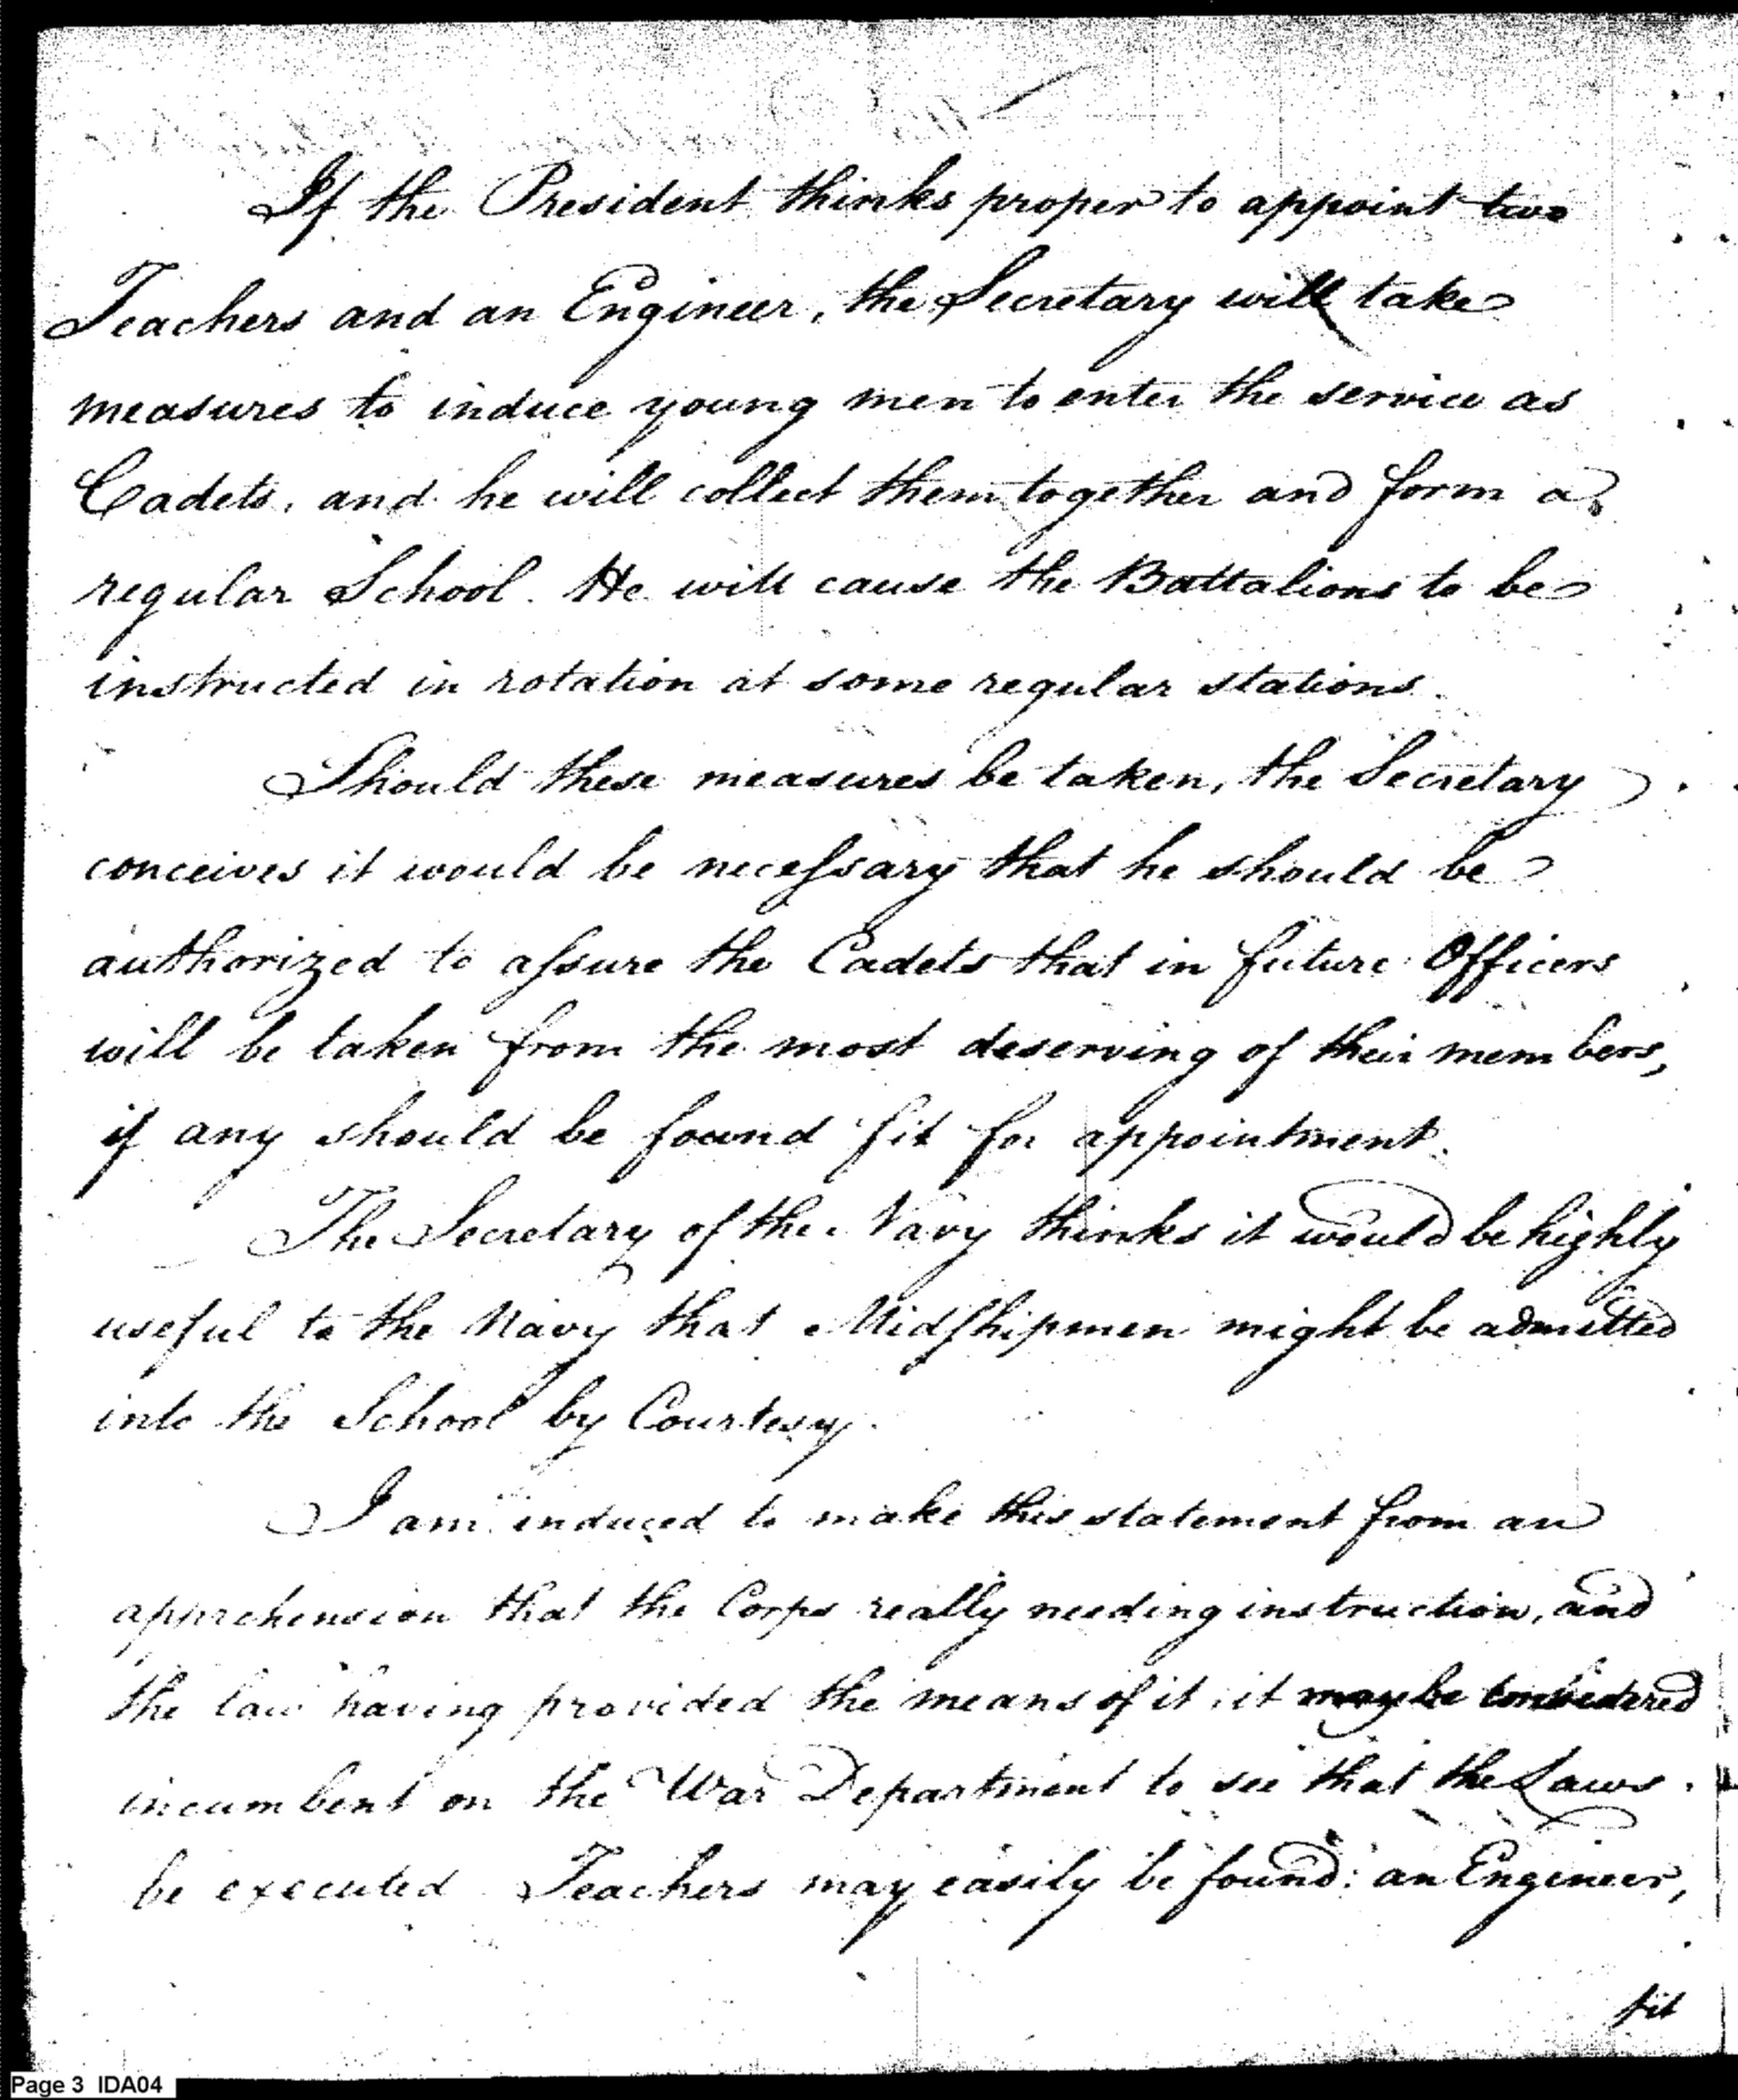 If the President thinks proper to appoint two
Teachers and an Engineer, the Secretary will take
measures to induce young men to enter the service as
Cadets, and he will collect them together and form a
regular School. He will cause the Battalions to be
instructed in rotation at some regular stations.
Should these measures be taken, the Secretary
conceives it would be neceſsary that he should be
authorized to aſsure the Cadets that in future Officers
will be taken from the most deserving of their members,
if any should be found fit for appointment.
The Secretary of the Navy thinks it would be highly
useful to the Navy that Midſhipmen might be admitted
into the School by Courtesy.
I am induced to make this statement from an
apprehension that the Corps really needing instruction, and
the law having provided the means of it, it may be considered
incumbent on the War Department to see that the Laws
be executed Teachers may easily be found: an Engineer,
fit
Page 3 IDA04